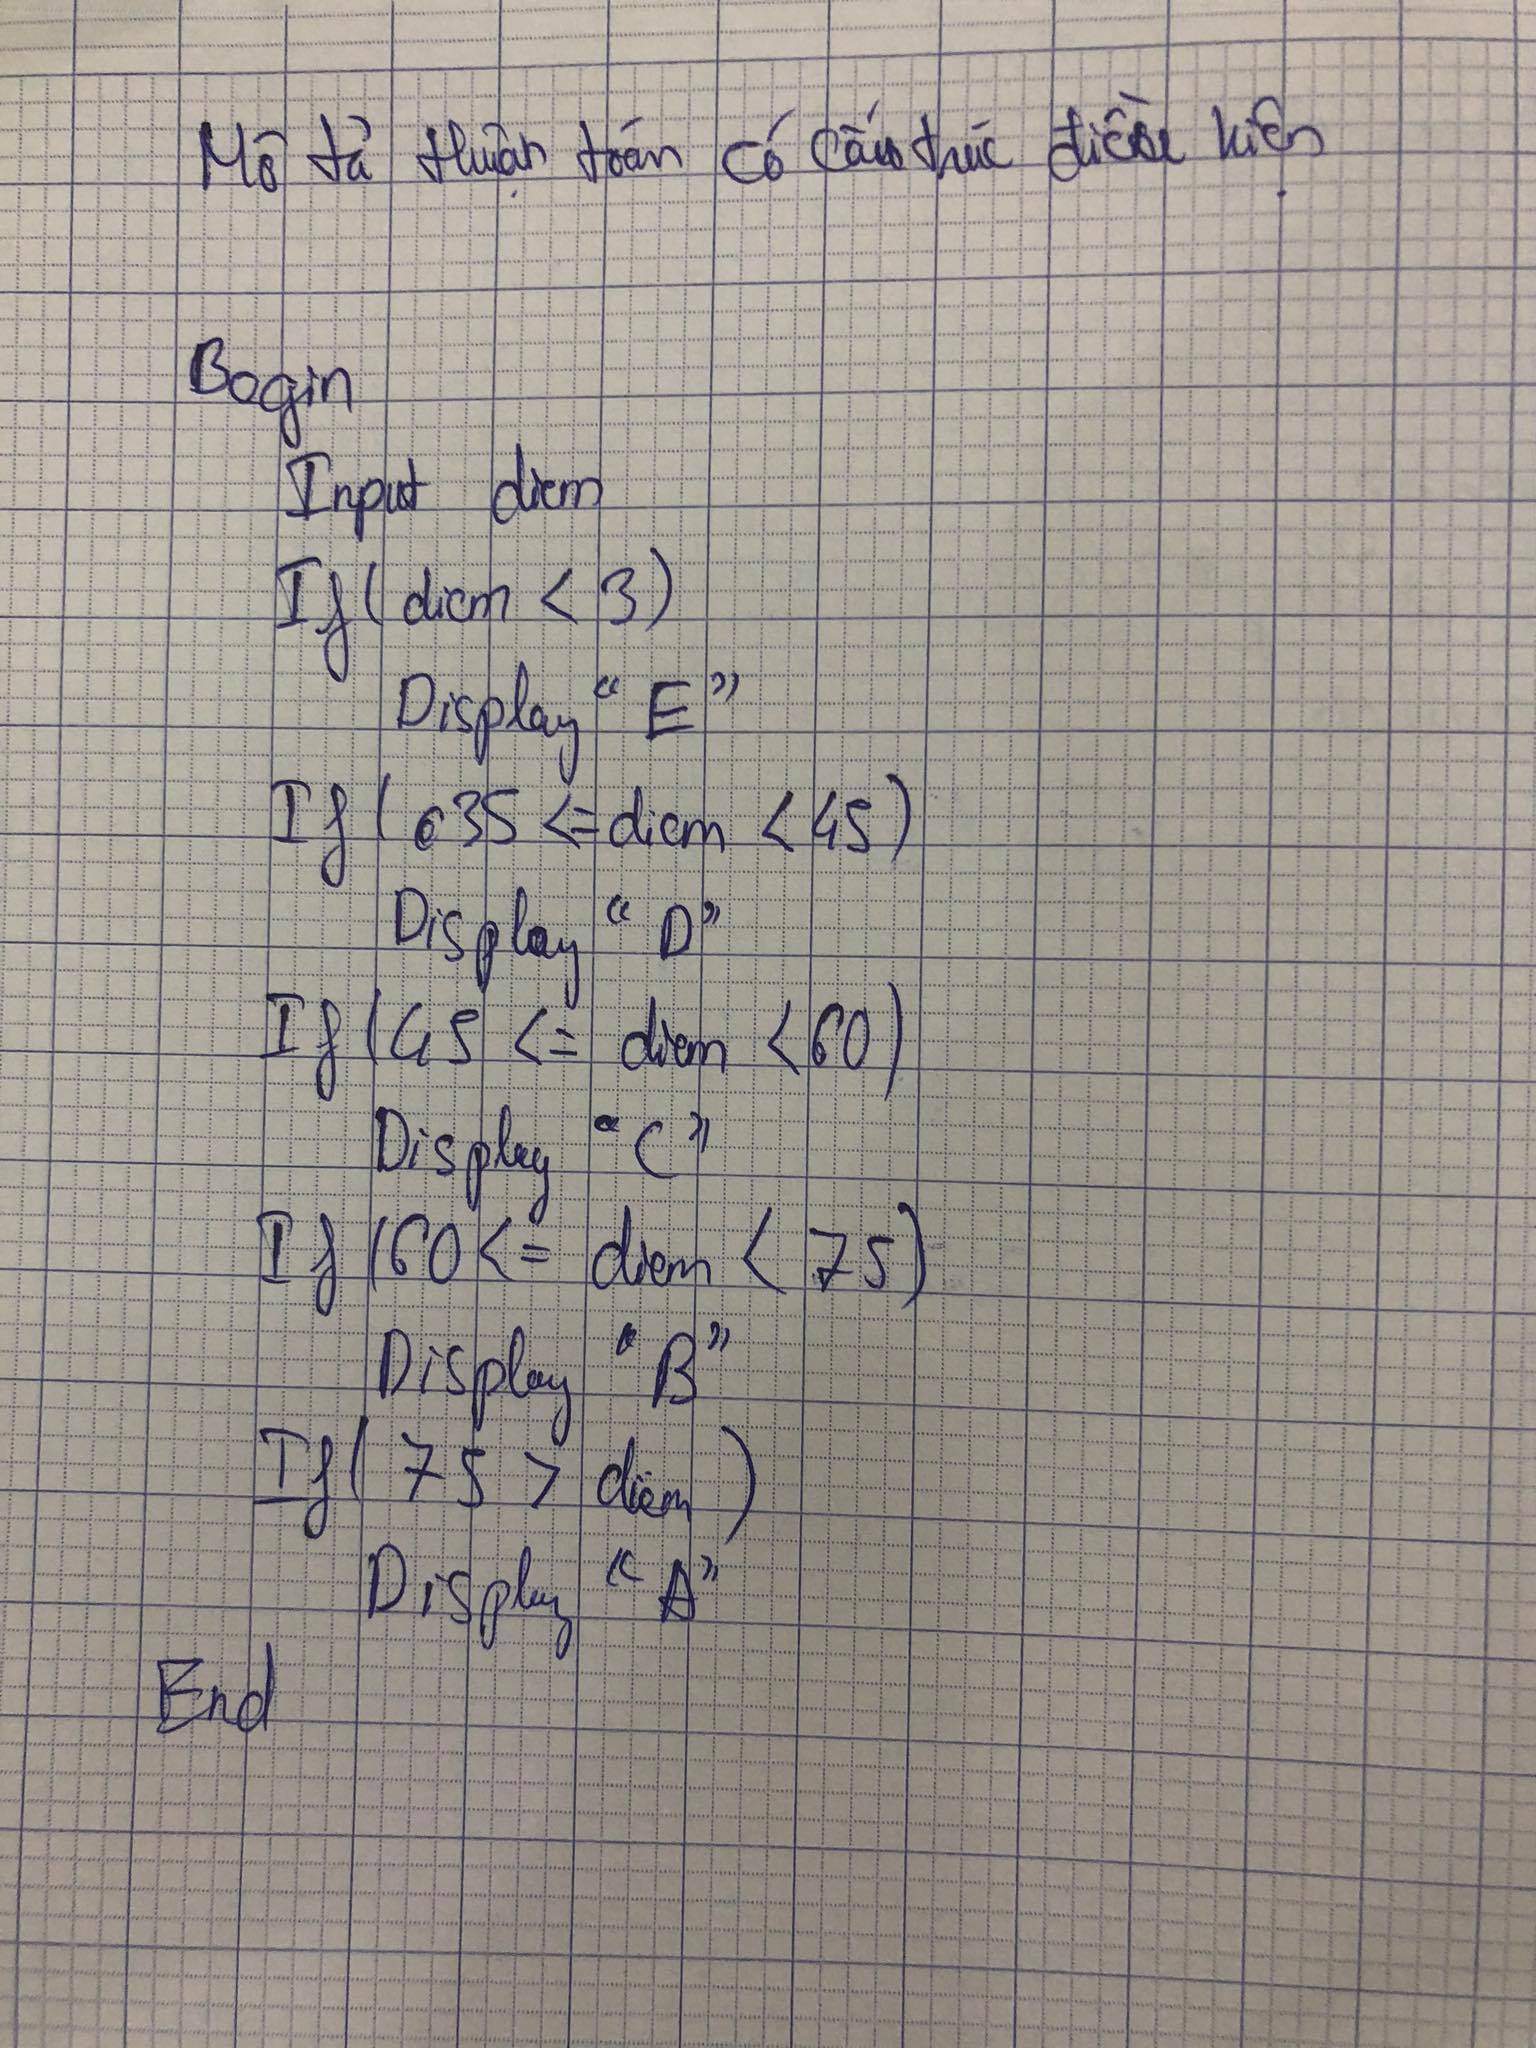 Mô tả thuật toán có cấu trúc điều kiện
Begin
Input diem
If( diem < 3)
Display “E”
If( 35 <= diem < 45)
Display “D”
If(45 <= diem < 60)
Display “C”
If (60 <= diem < 75)
Display “B”
If( 75 > diem )
Display “A”
End